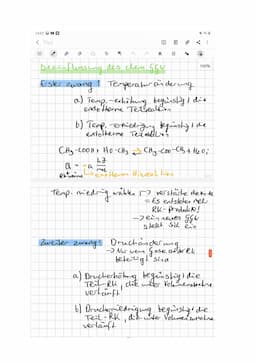 Beeinflussung des chem. GGW
Erster Zwang: Temperaturänderung
a) Temp.-erhöhung begünstigt die
endotherme Teilreaktion
b) Temp.-erniedrigung begünstigt die
exotherme Teilreaktion
CH₃-COOH + HO-CH₃ ⇌ CH₃-COO-CH₃ + H₂O;
Q = -a kJ/mol
exotherm Hinreaktion
Temp. niedrig wählen
= Es entstehen mehr
RK-Produkte!
→ ein neues GGW
stellt sich ein
Zweiter Zwang: Druckänderung
→ Nur wenn Gase an der RK
beteiligt sind
a) Druckerhöhung begünstigt die
Teil-RK, die unter Volumenabnahme
verläuft
b) Druckerniedrigung begünstigt die
Teil-RK, die unter Volumenzunahme
verläuft